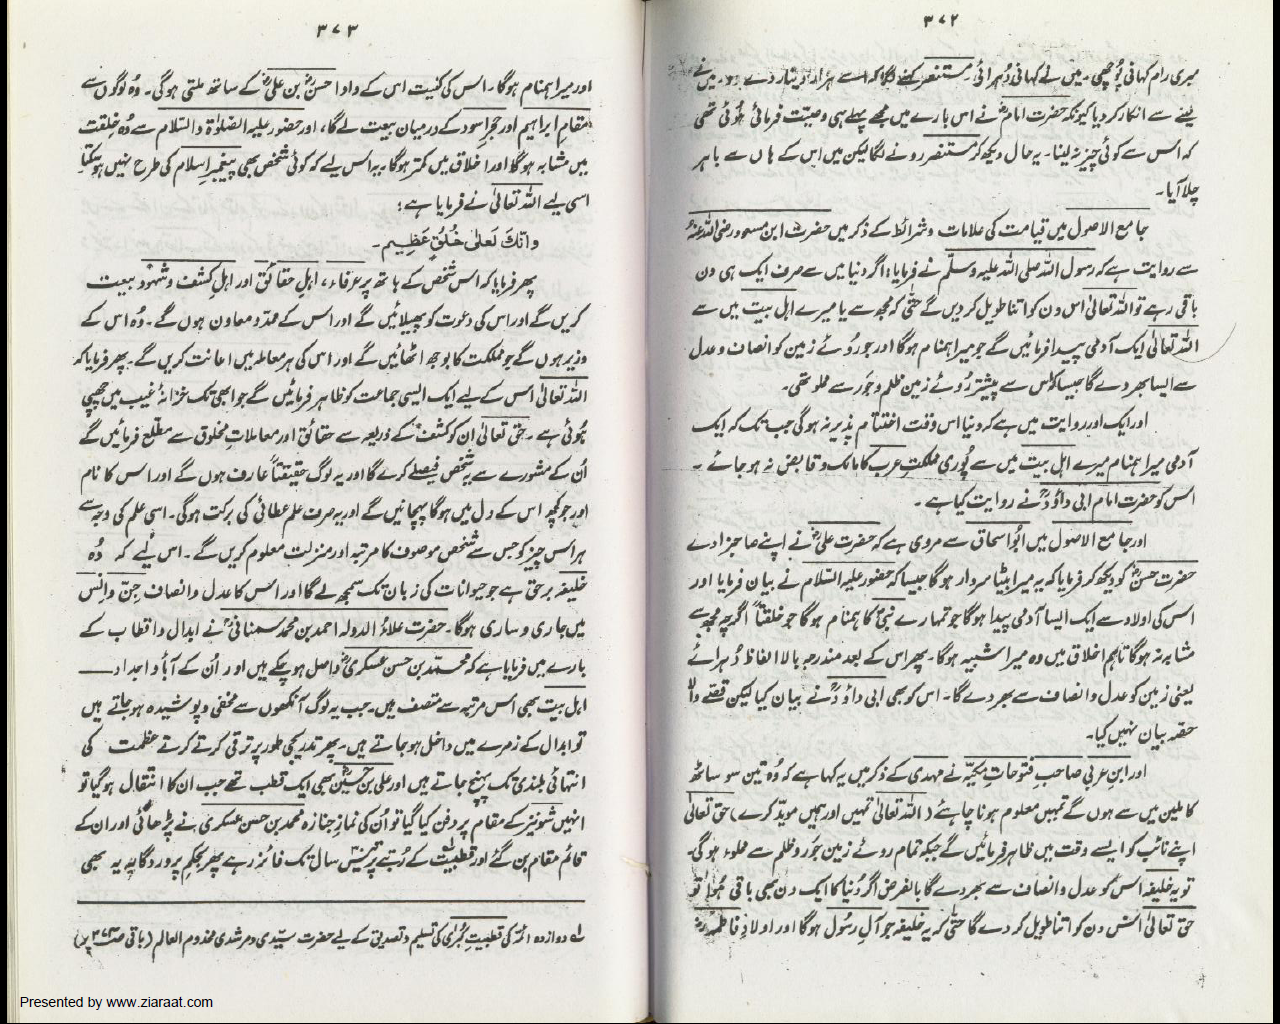 ۳۷۲
میری رام کہانی پُوچھی۔ میں نے کہانی دُہرائی مستنصر کہنے لگا کہ اسے ہزار دینار دے دو۔ میں نے
لینے سے انکار کر دیا کیونکہ حضرت امامؓ نے اس بارے میں مجھے پہلے ہی وصیّت فرمائی ہُوئی تھی
کہ اس سے کوئی چیز نہ لینا۔ یہ حال دیکھ کر مستنصر رونے لگا لیکن میں اس کے ہاں سے باہر
چلا آیا۔
جامع الاصول میں قیامت کی علامات و شرائط کے ذکر میں حضرت ابن مسعود رضی اللہ عنہٗ
سے روایت ہے کہ رسول اللہ صلی اللہ علیہ وسلّم نے فرمایا: اگر دنیا میں سے صرف ایک ہی دن
باقی رہے تو اللہ تعالیٰ اس دن کو اتنا طویل کر دیں گے حتیٰ کہ مجھ سے یا میرے اہل بیت میں سے
اللہ تعالیٰ ایک آدمی پیدا فرمائیں گے جو میرا ہمنام ہوگا اور جو رُوئے زمین کو انصاف و عدل
سے ایسا بھر دے گا جیسا کہ اس سے پیشتر رُوئے زمین ظلم و جَور سے مملو تھی۔
اور ایک اور روایت میں ہے کہ دنیا اس وقت اختتام پذیر نہ ہوگی جب تک کہ ایک
آدمی میرا ہمنام میرے اہل بیت میں سے پُوری مملکتِ عرب کا مالک و قابض نہ ہو جائے۔
اس کو حضرت امام ابی داؤدؒ نے روایت کیا ہے۔
اور جامع الاصول میں ابُو اسحاق سے مروی ہے کہ حضرت علیؓ نے اپنے صاحبزادے
حضرت حسنؓ کو دیکھ کر فرمایا کہ یہ میرا بیٹا سردار ہوگا جیسا کہ حضور علیہ السّلام نے بیان فرمایا اور
اس کی اولاد سے ایک ایسا آدمی پیدا ہوگا جو تمہارے نبیؐ کا ہمنام ہوگا جو خلقتاً اگرچہ مجھ سے
مشابہ نہ ہوگا تاہم اخلاق میں وہ میرا شبیہ ہوگا۔ پھر اس کے بعد مندرجہ بالا الفاظ دُہرائے
یعنی زمین کو عدل و انصاف سے بھر دے گا۔ اس کو بھی ابی داؤدؒ نے بیان کیا لیکن قصّے والا
حصّہ بیان نہیں کیا۔
اور ابن عربی صاحبِ فتوحاتِ مکیّہ نے مہدی کے ذکر میں یہ کہا ہے کہ وُہ تین سو ساٹھ
کاملین میں سے ہوں گے تمہیں معلوم ہونا چاہئے (اللہ تعالیٰ تمہیں اور ہمیں موید کرے) حق تعالیٰ
اپنے نائب کو ایسے وقت میں ظاہر فرمائیں گے جبکہ تمام روئے زمین جَور و ظلم سے مملو ہوگی۔
تو یہ خلیفہ اس کو عدل و انصاف سے بھر دے گا بالفرض اگر دُنیا کا ایک دن بھی باقی ہُوا تو
حق تعالیٰ اس دن کو اتنا طویل کر دے گا حتیٰ کہ یہ خلیفہ جو آلِ رسُول ہوگا اور اولادِ فاطمہؓ
۳۷۳
اور میرا ہمنام ہوگا۔ اس کی کنیت اس کے دادا حسنؓ بن علیؓ کے ساتھ ملتی ہوگی۔ وُہ لوگوں سے
مقامِ ابراہیم اور حجرِ اسود کے درمیان بیعت لے گا، اور حضور علیہ الصّلوٰۃ والسّلام سے وُہ خلقت
میں مشابہ ہوگا اور اخلاق میں کمتر ہوگا۔ یہ اس لیے کہ کوئی شخص بھی پیغمبرِ اسلام کی طرح نہیں ہو سکتا
اسی لیے اللہ تعالیٰ نے فرمایا ہے:
وانکَ لَعلیٰ خُلُقٍ عَظِیم۔
پھر فرمایا کہ اس شخص کے ہاتھ پر عرفاء، اہلِ حقائق اور اہلِ کشف و شہود بیعت
کریں گے اور اس کی دعوت کو پھیلائیں گے اور اس کے ممد و معاون ہوں گے۔ وُہ اس کے
وزیر ہوں گے جو مملکت کا بوجھ اٹھائیں گے اور اس کی ہر معاملہ میں اعانت کریں گے۔ پھر فرمایا کہ
اللہ تعالیٰ اس کے لیے ایک ایسی جماعت کو ظاہر فرمائیں گے جو ابھی تک خزانۂ غیب میں چھپی
ہُوئی ہے۔ حق تعالیٰ ان کو کشف کے ذریعہ سے حقائق اور معاملاتِ مخلوق سے مطلع فرمائیں گے
اُن کے مشورے سے یہ شخص فیصلے کرے گا اور یہ لوگ حقیقتاً عارف ہوں گے اور اس کا نام
اور جو کچھ اس کے دل میں ہوگا پہچانیں گے اور یہ صرف علمِ عطائی کی برکت ہوگی۔ اسی علم کی وجہ سے
ہر اس چیز کو جس سے شخص موصوف کا مرتبہ اور منزلت معلوم کریں گے۔ اس لیے کہ وُہ
خلیفہ برحق ہے جو حیوانات کی زبان تک سمجھ لے گا اور اس کا عدل و انصاف جِنّ و انس
میں جاری و ساری ہوگا۔ حضرت علاؤ الدولہ احمد بن محمد سمنانیؒ نے ابدال و اقطاب کے
بارے میں فرمایا ہے کہ محمد بن حسن عسکریؓ واصل ہو چکے ہیں اور اُن کے آبا و اجداد
اہلِ بیت بھی اس مرتبہ سے متصف ہیں۔ جب یہ لوگ آنکھوں سے مخفی و پوشیدہ ہو جاتے ہیں
تو ابدال کے زمرے میں داخل ہو جاتے ہیں۔ پھر تدریجی طور پر ترقی کرتے کرتے عظمت کی
انتہائی بلندی تک پہنچ جاتے ہیں اور علی بن حسینؓ بھی ایک قطب تھے جب ان کا انتقال ہوگیا تو
انہیں شونیز کے مقام پر دفن کیا گیا تو اُن کی نمازِ جنازہ محمد بن حسن عسکری نے پڑھائی اور ان کے
قائم مقام بن گئے اور قطبیت کے رُتبے پر تیئس سال تک فائز رہے پھر بحکم پروردگار یہ بھی
لہ دوازدہ ائمہ کی قطبیتِ کبریٰ کی تسلیم و تصدیق کے لیے حضرت سیّدی و مرشدی مخدوم العالم (باقی صـ ۳۷۴ پر)
Presented by www.ziaraat.com